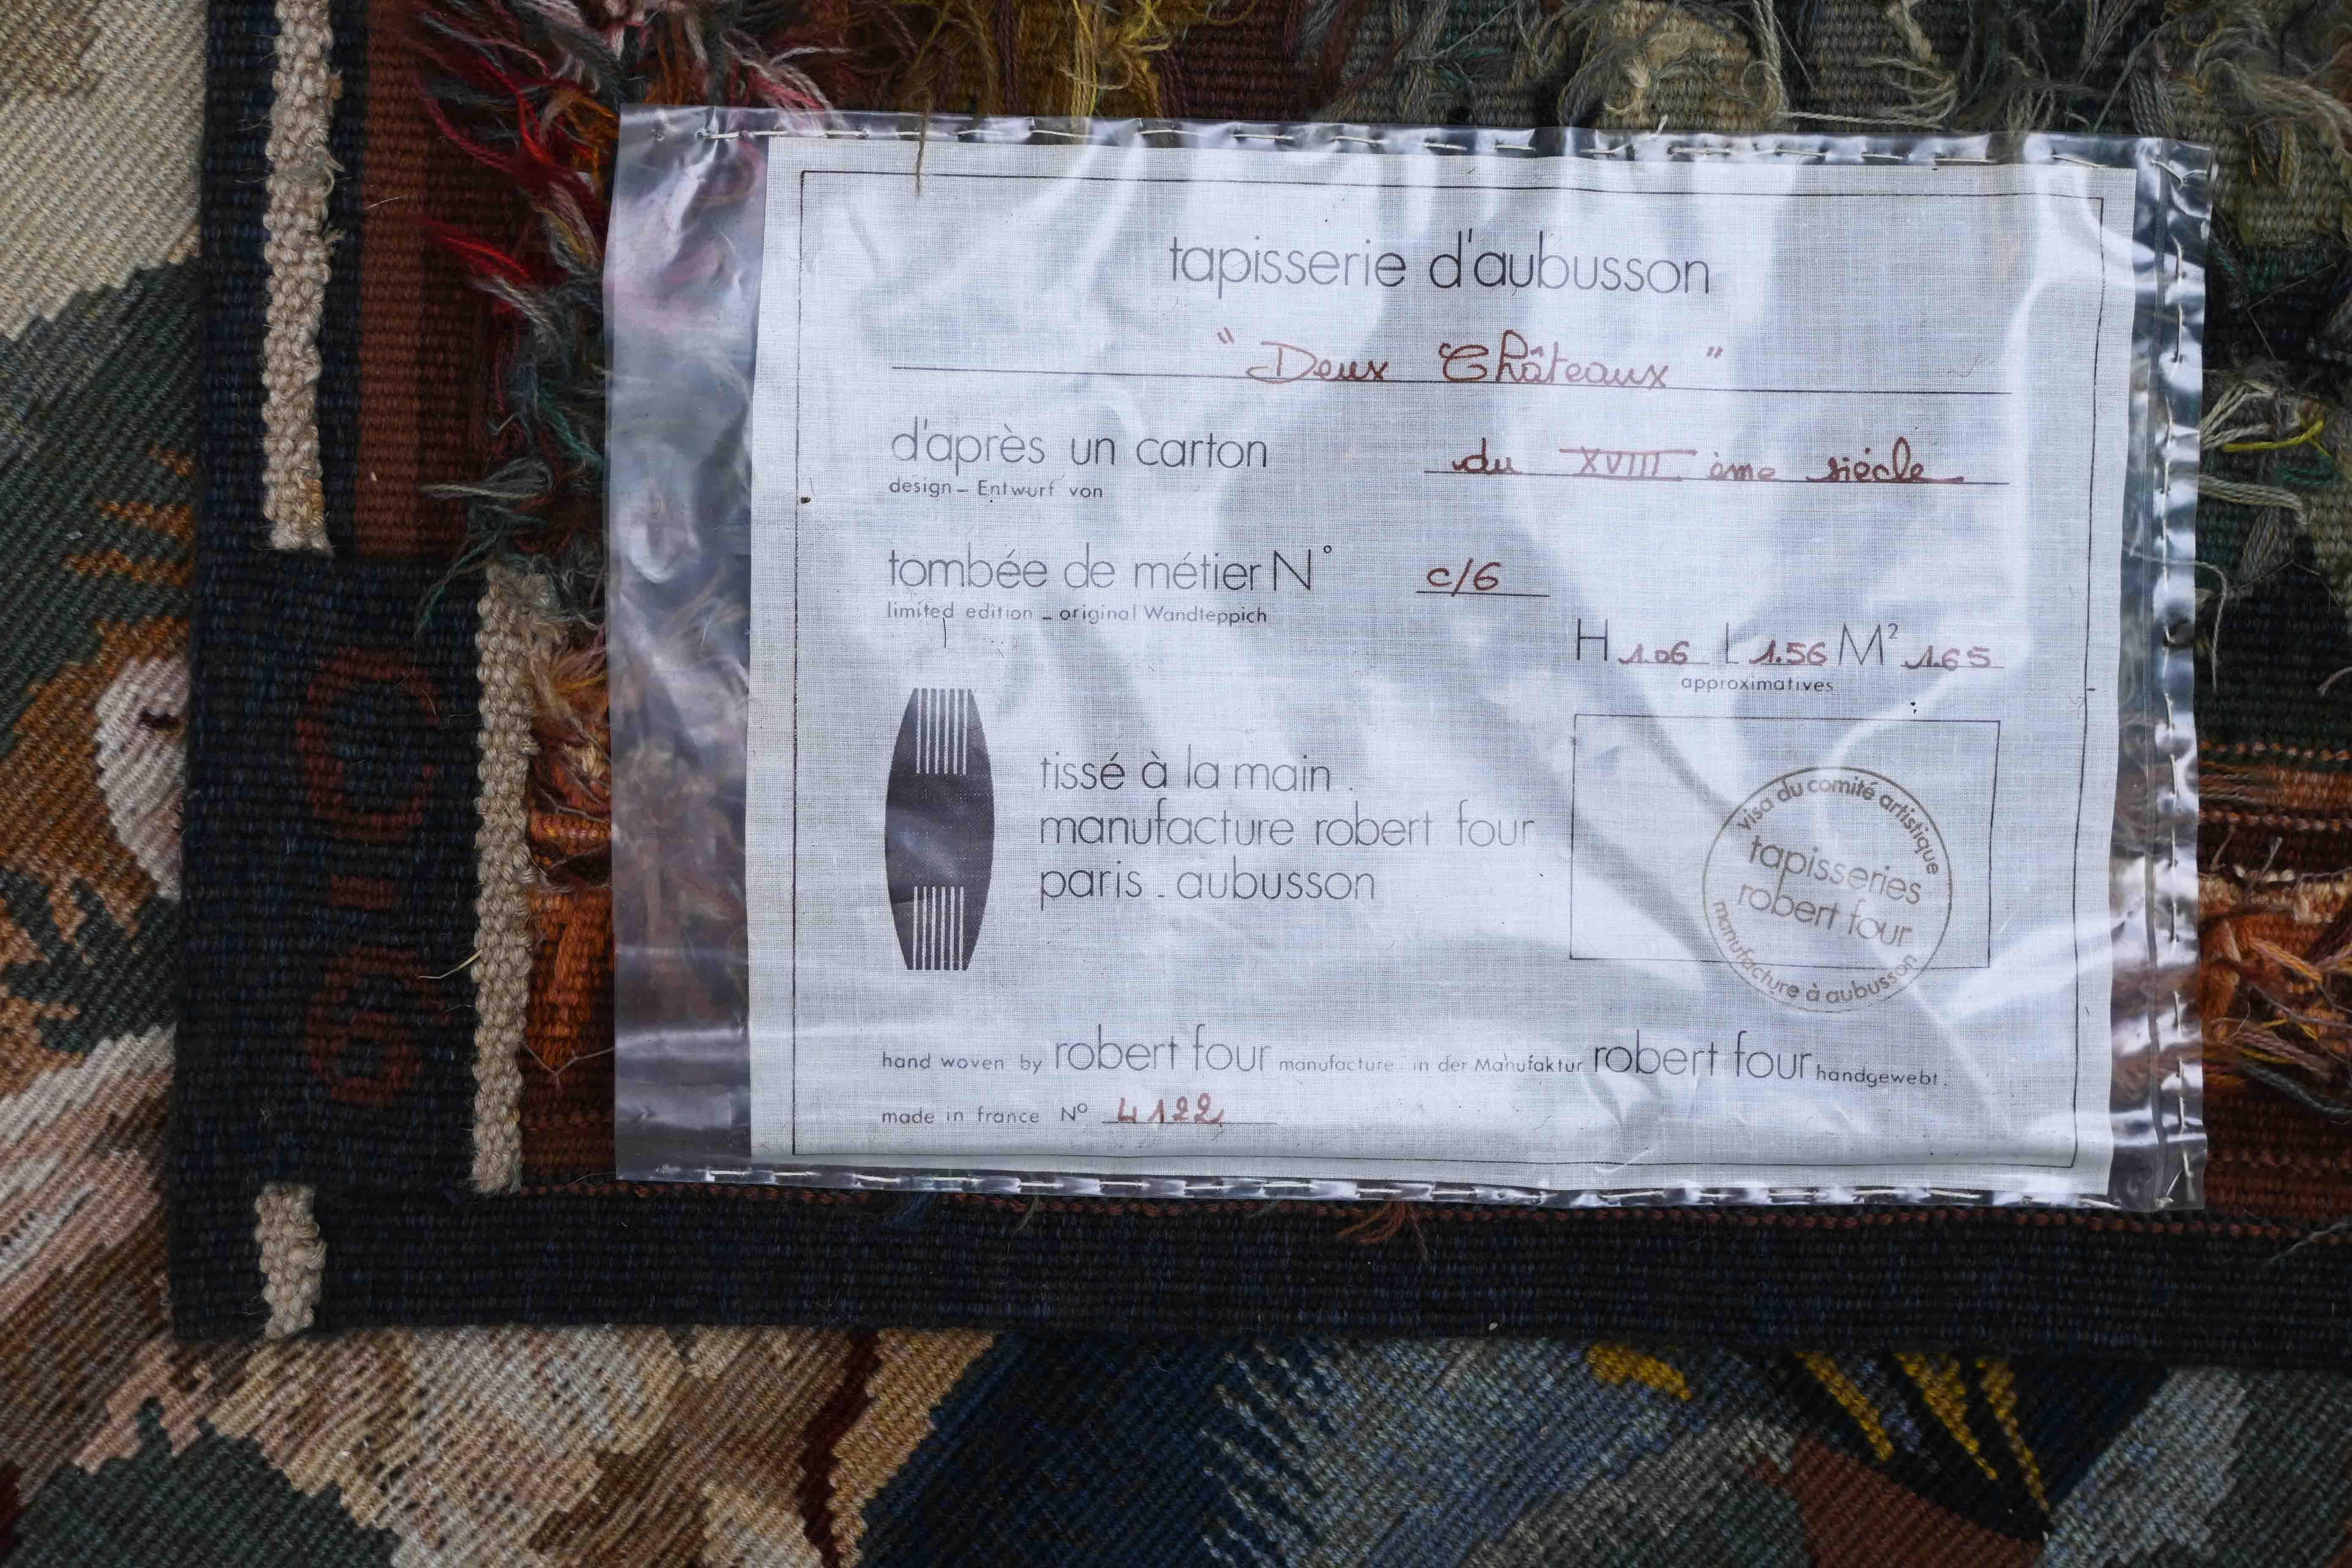 tapisserie d'aubusson
"Deux Châteaux"
d'après un carton du XVIII ème siècle
design - Entwurf von
tombée de métier N° c/6
limited edition - original Wandteppich
H 1.06 L 1.56 M² 1.65
approximatives
tissé à la main.
manufacture robert four
paris - aubusson
visa du comité artistique
tapisseries
robert four
manufacture à aubusson
hand woven by robert four manufacture. in der Manufaktur robert four handgewebt.
made in france N° 4122
C-6